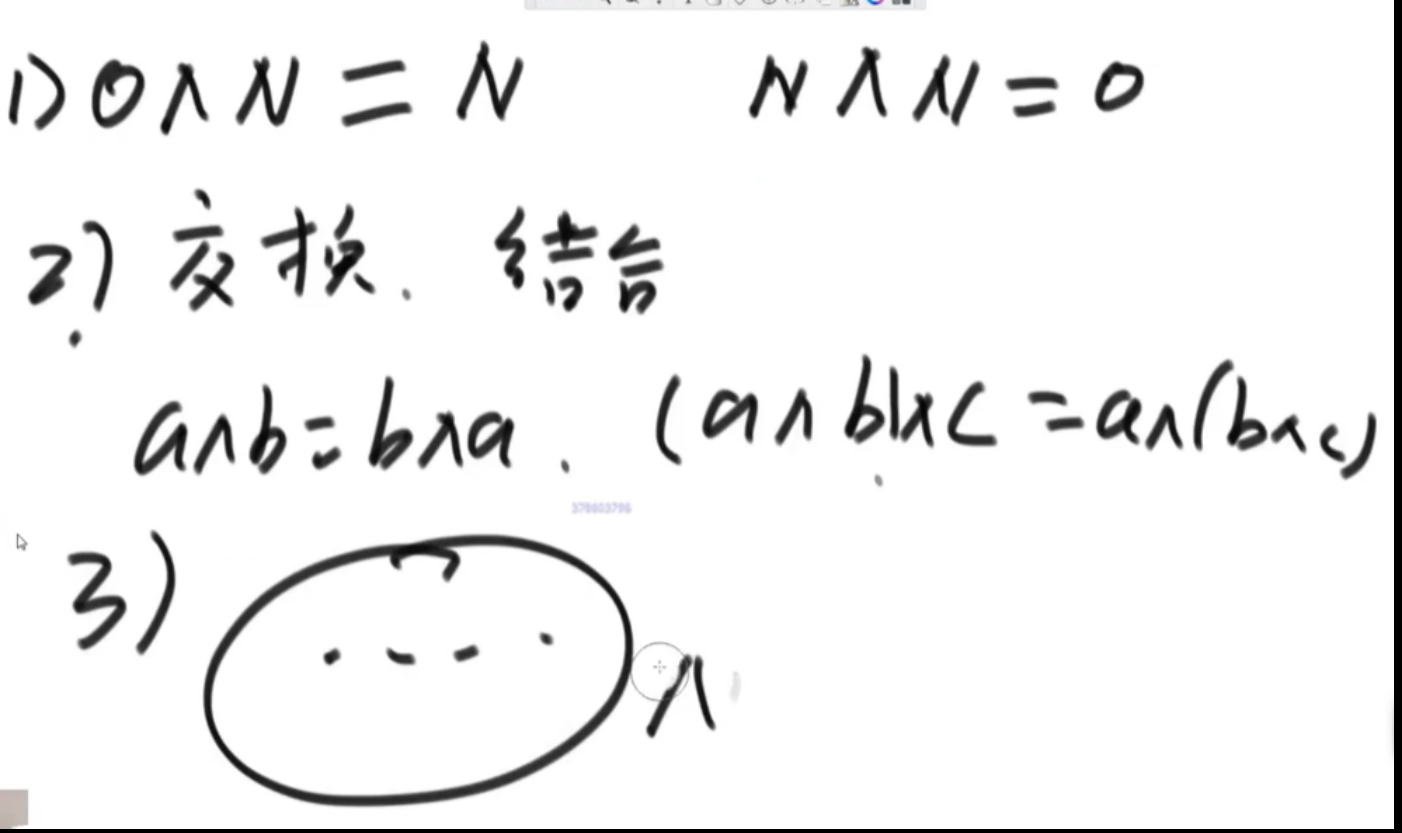 1) 0 ∧ N = N N ∧ N = 0
2) 交换. 结合
a∧b = b∧a. (a∧b)∧c = a∧(b∧c)
378603798
3) ∧